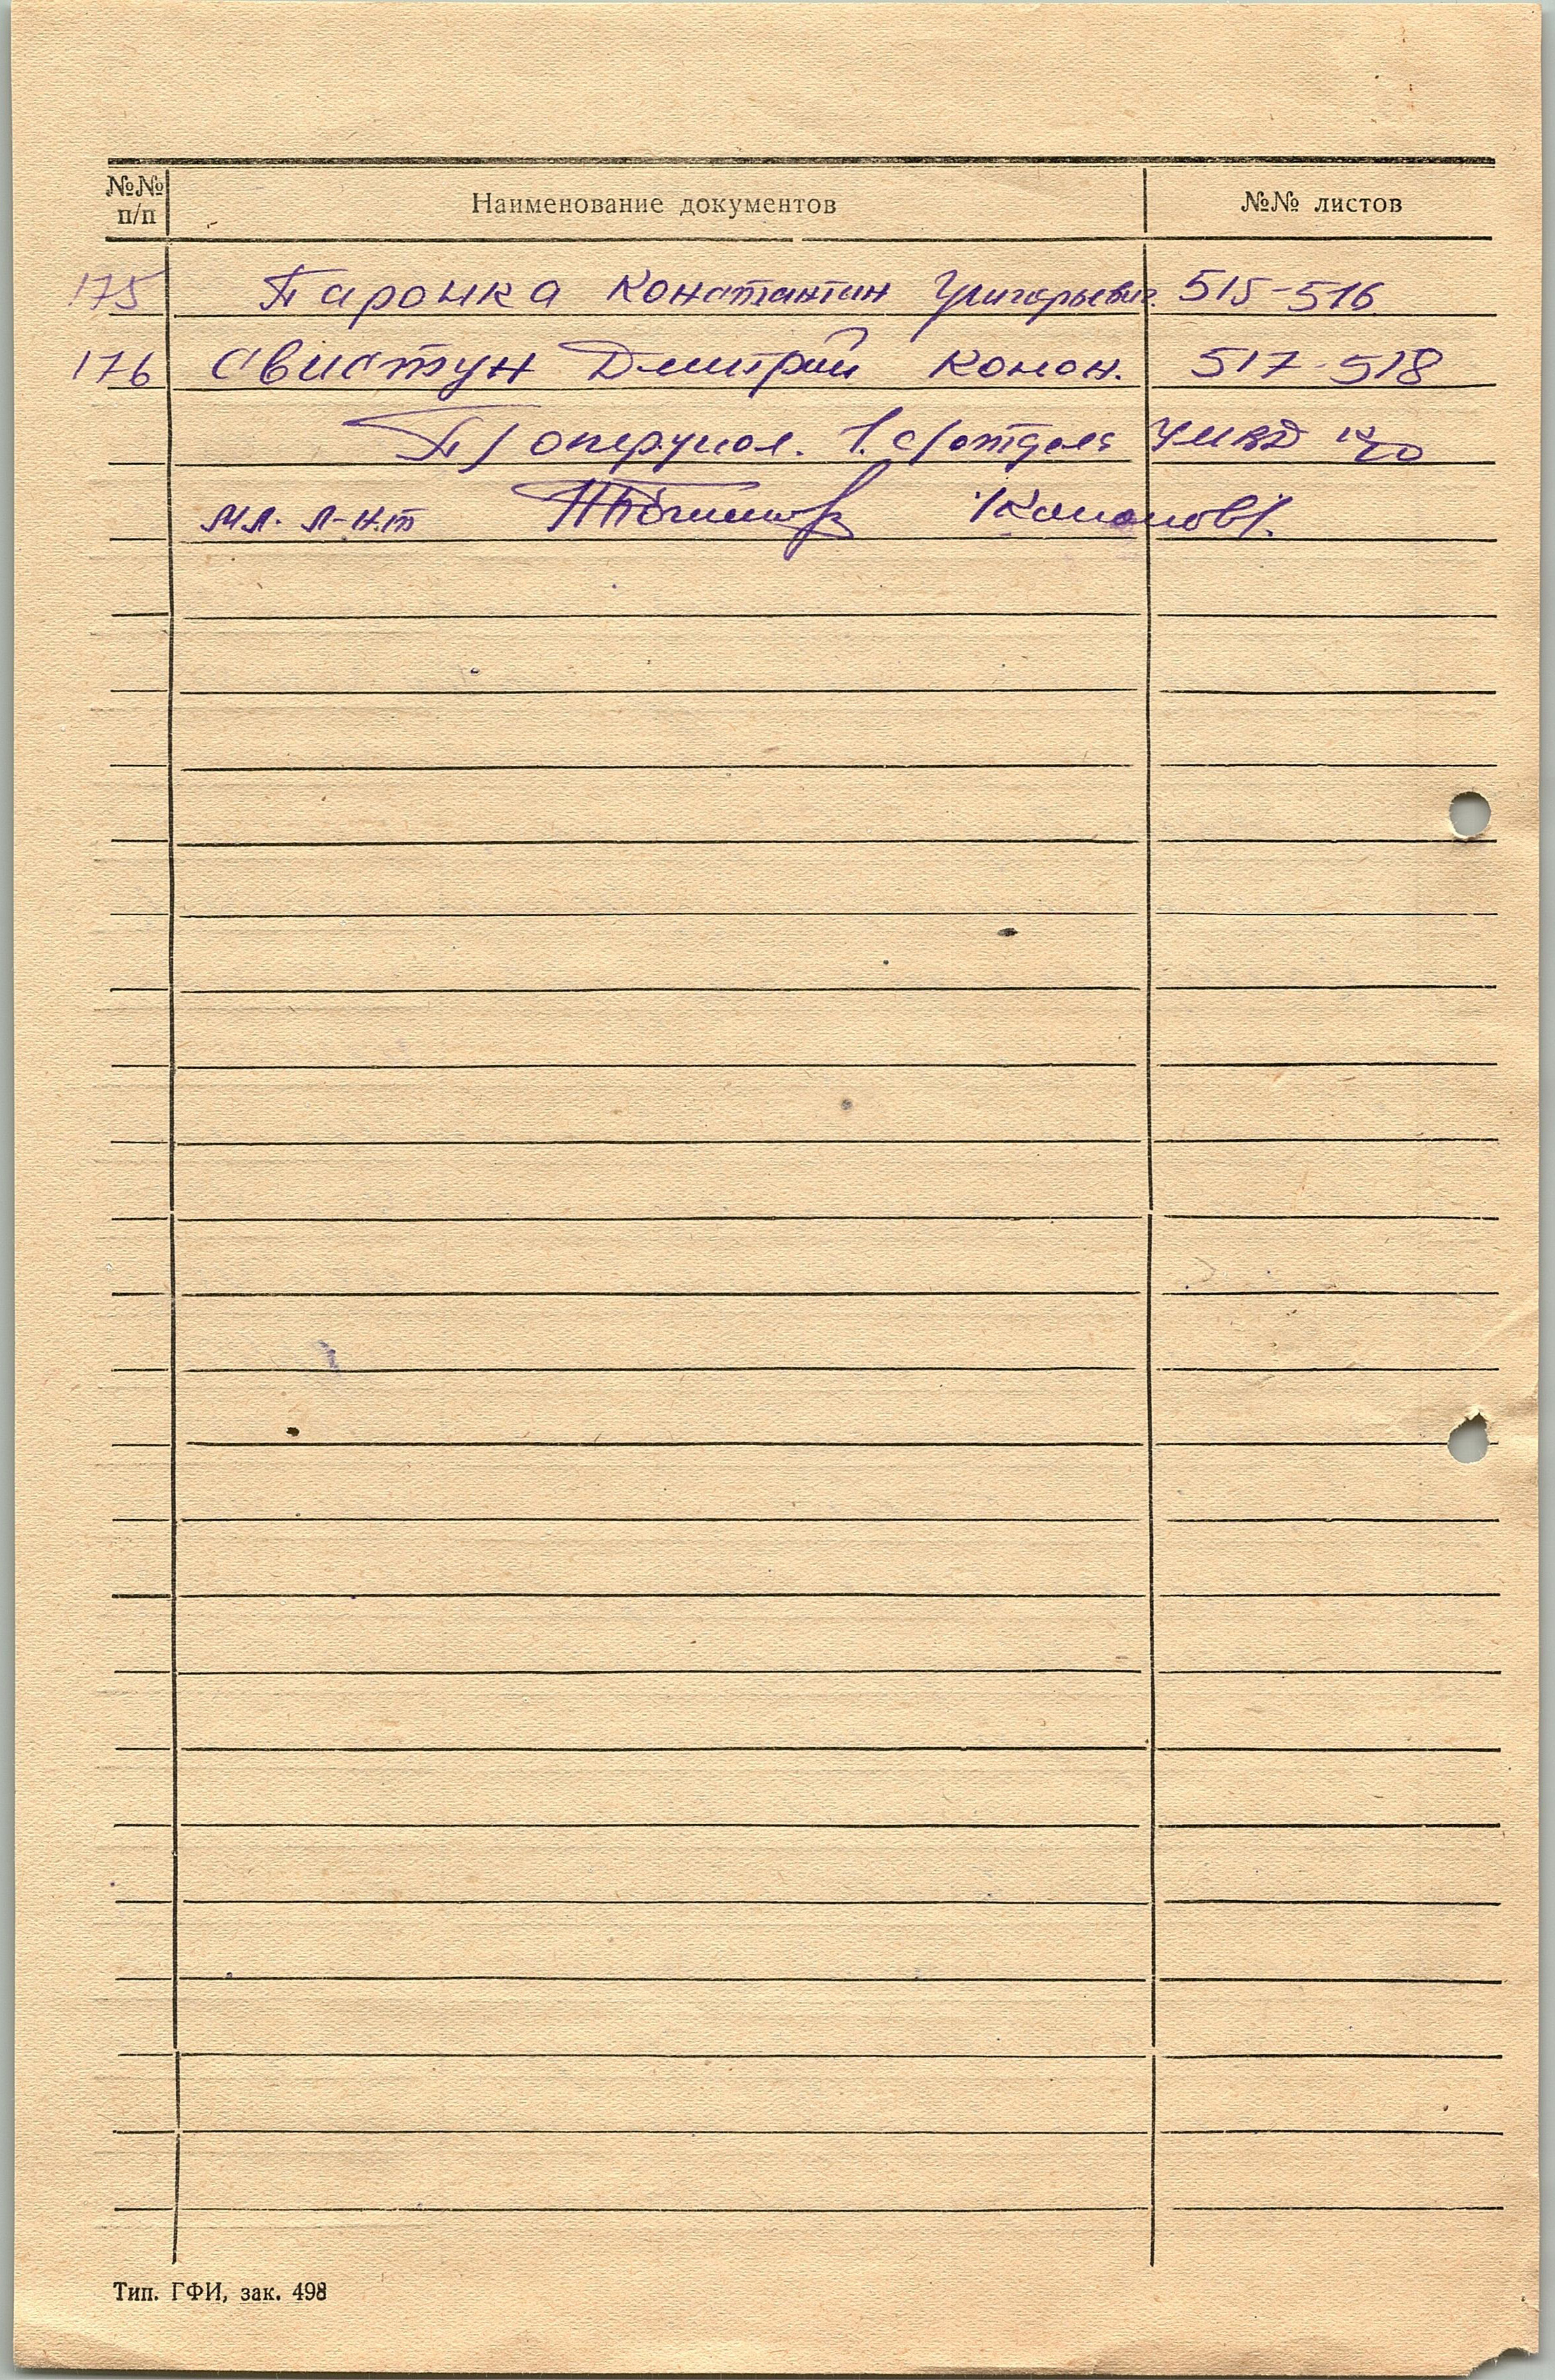 №№ п/п Наименование документов №№ листов
175 Парошка Константин Григорьевич. 515-516
176 Свистун Дмитрий Конон. 517-518
П/оперупол. 1. с/отдела УМВД
мл. л-н.т /Кононов/.
Тип. ГФИ, зак. 498